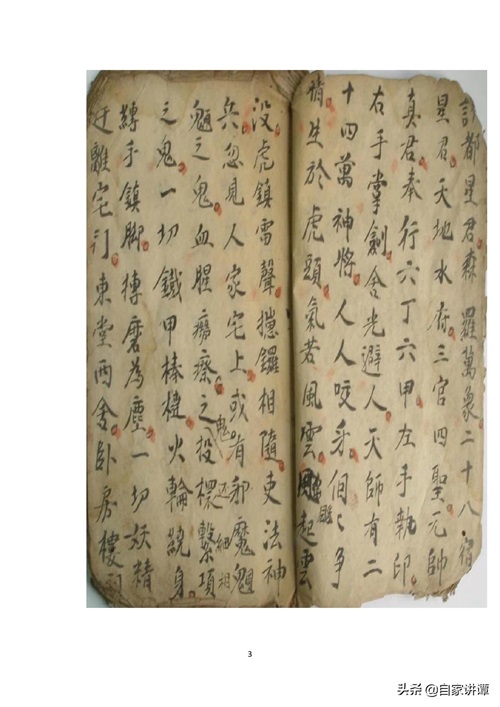 計都星君森羅萬象二十八宿
星君天地水府三官四聖元帥
真君奉行六丁六甲左手執印
右手掌劍舍光避人天師有二
十四萬神將人人咬牙個〻爭
皆生於虎頭氣若風雲雕起雲
雕
没虎鎮雷聲攄鑼相隨吏法神
兵忽見人家宅上或有邪魔魍
魎之鬼血腥癆瘵之投環繫項
鬼
之鬼一切鐵甲棒槤火輪繞身
轉手鎮脚搏磨為塵一切妖精
迁離宅门東堂西舍卧房樓
3
头条 @自家讲谭